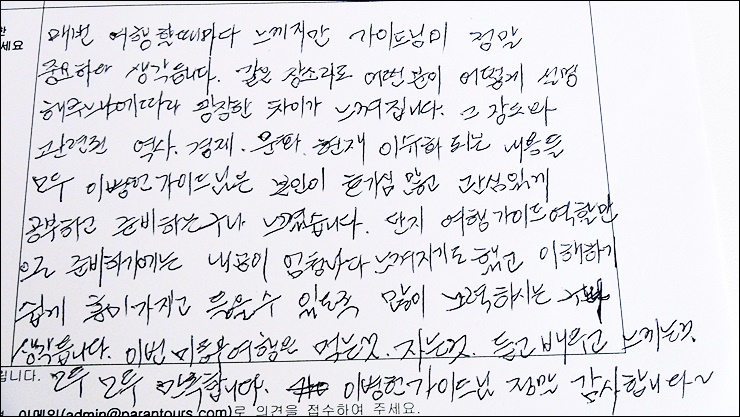 한
세요
매번 여행할때마다 느끼지만 가이드님이 정말
중요하다 생각듭니다. 같은 장소라도 어떤분이 어떻게 설명
해주느냐에따라 굉장한 차이가 느껴집니다. 그 장소와
관련된 역사. 경제. 문화. 현재 이슈화 되는 내용들
모두 이병헌 가이드님은 본인이 호기심 많고 관심있게
공부하고 준비하는구나 느꼈습니다. 단지 여행가이드역할만
으로 준비하기에는 내공이 엄청나다 느껴지기도 했고 이해하기
쉽게 흥미가지고 들을수 있도록 많이 노력하시는
생각듭니다. 이번 미동부여행은 먹는것. 자는것. 듣고 배우고 느끼는것.
모두 모두 만족합니다. 이병헌가이드님 정말 감사합니다~
됩니다.
이메일(admin@parantours.com)로 의견을 접수하여 주세요.